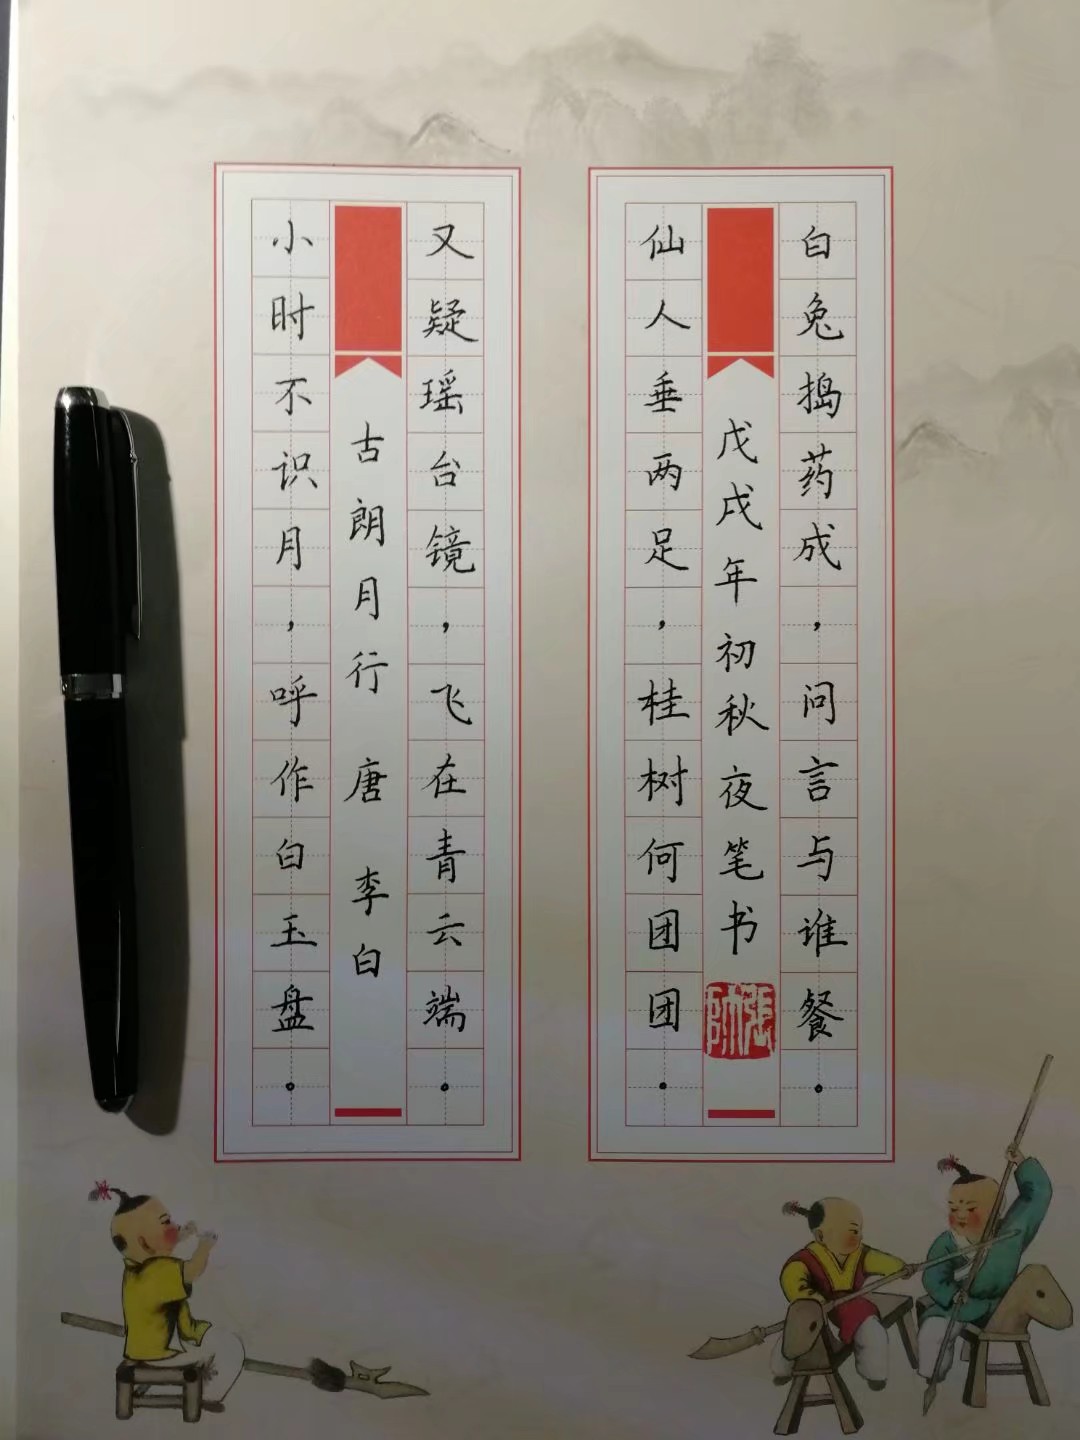 小时不识月，呼作白玉盘。
古朗月行 唐 李白
又疑瑶台镜，飞在青云端。
仙人垂两足，桂树何团团。
戊戌年初秋夜笔书
張帥
白兔捣药成，问言与谁餐。